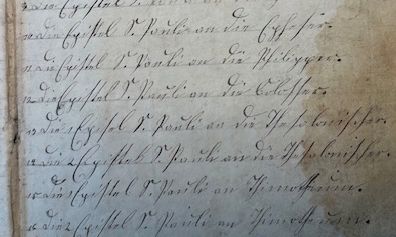 die Epistel S. Pauli an die Epheser.
die Epistel S. Pauli an die Philipper.
die Epistel S. Pauli an die Colosser.
die 1 Epistel S. Pauli an die Thesalonischer.
die 2 Epistel S. Pauli an die Thesalonischer.
die 1 Epistel S. Pauli an Thimotheum.
die 2 Epistel S. Pauli an Thimotheum.